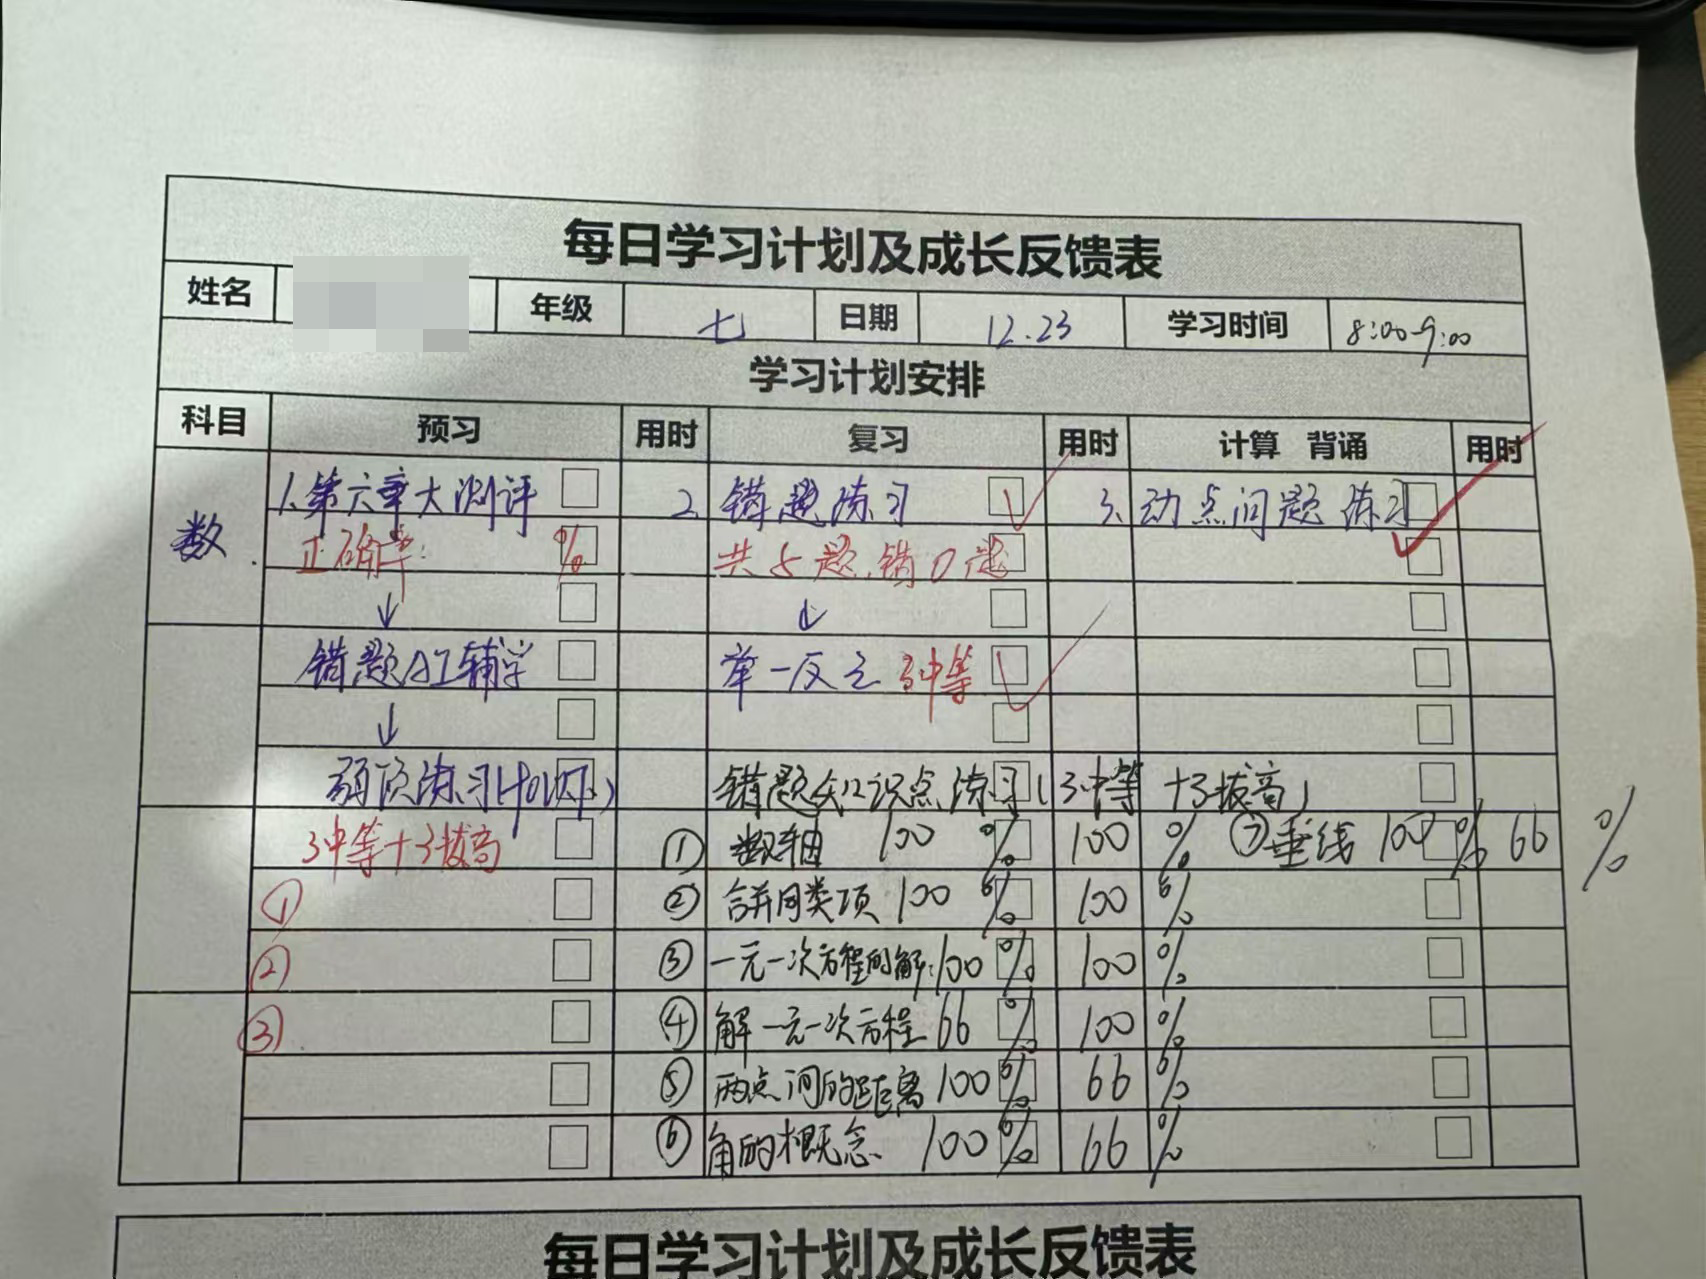 每日学习计划及成长反馈表
姓名 年级 七 日期 12.23 学习时间 8:00-9:00
学习计划安排
科目 预习 用时 复习 用时 计算 背诵 用时
数 1.第六章大测评 2.错题练习 3.动点问题练习
正确率: % 共5题,错0题
↓ ↓
错题AI辅学 举一反三 3中等
↓
弱项练习(80以下) 错题知识点练习(3中等+3拔高)
3中等+3拔高 ① 数轴 100 % 100 % ⑦垂线 100 % 66 %
① ② 合并同类项 100 % 100 %
② ③ 一元一次方程的解:100 % 100 %
③ ④ 解一元一次方程 66 % 100 %
⑤ 两点间的距离 100 % 66 %
⑥ 角的概念 100 % 66 %
每日学习计划及成长反馈表